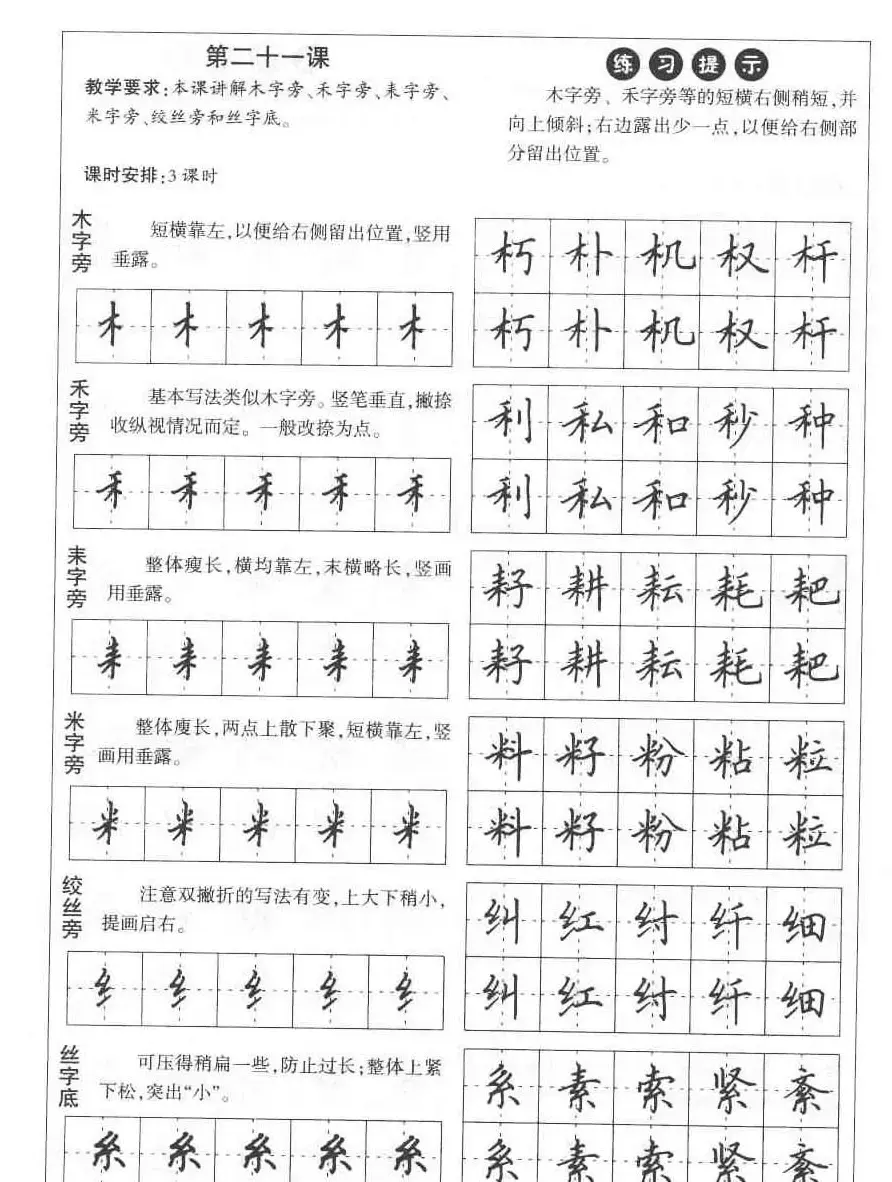 第二十一课
教学要求:本课讲解木字旁、禾字旁、耒字旁、
米字旁、绞丝旁和丝字底。
课时安排:3课时
练习提示
木字旁、禾字旁等的短横右侧稍短,并
向上倾斜;右边露出少一点,以便给右侧部
分留出位置。
木字旁
短横靠左,以便给右侧留出位置,竖用
垂露。
木 木 木 木 木
朽 朴 机 权 杆
朽 朴 机 权 杆
禾字旁
基本写法类似木字旁。竖笔垂直,撇捺
收纵视情况而定。一般改捺为点。
禾 禾 禾 禾 禾
利 私 和 秒 种
利 私 和 秒 种
耒字旁
整体瘦长,横均靠左,末横略长,竖画
用垂露。
耒 耒 耒 耒 耒
耔 耕 耘 耗 耙
耔 耕 耘 耗 耙
米字旁
整体廋长,两点上散下聚,短横靠左,竖
画用垂露。
米 米 米 米 米
料 籽 粉 粘 粒
料 籽 粉 粘 粒
绞丝旁
注意双撇折的写法有变,上大下稍小,
提画启右。
纟 纟 纟 纟 纟
纠 红 纣 纤 细
纠 红 纣 纤 细
丝字底
可压得稍扁一些,防止过长;整体上紧
下松,突出“小”。
糸 糸 糸 糸 糸
系 素 索 紧 紊
系 素 索 紧 紊